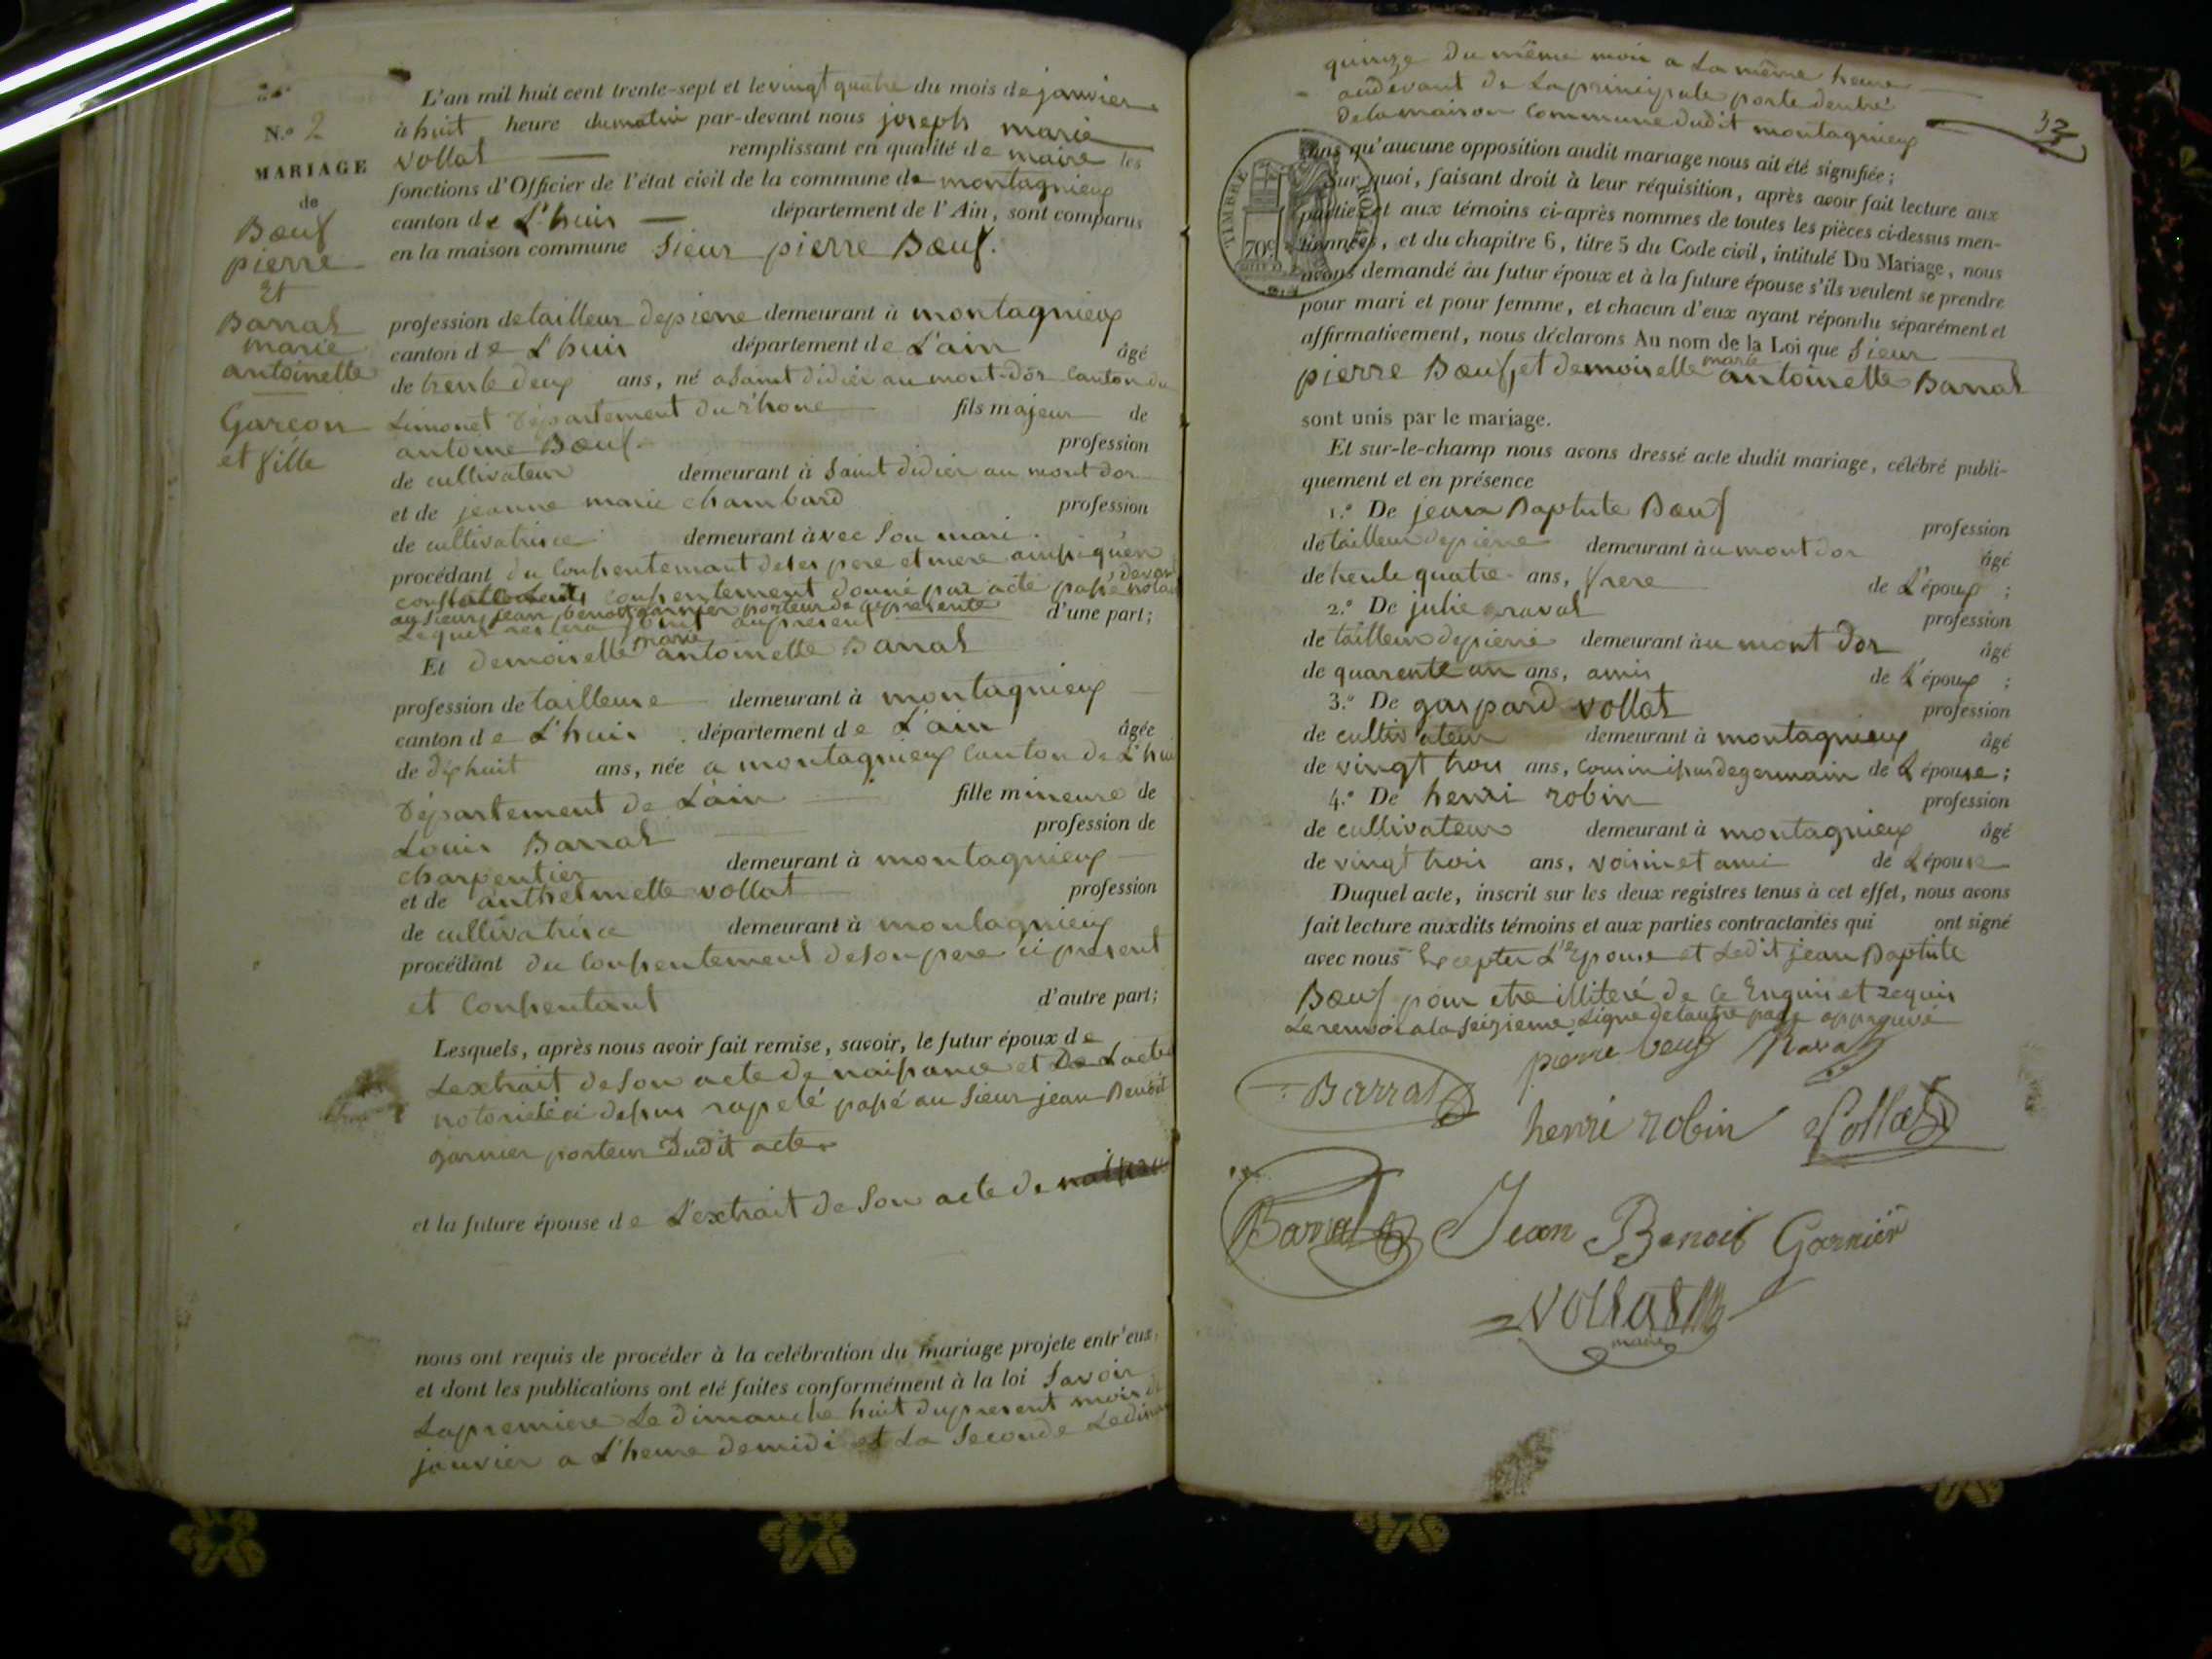 N.º 2
MARIAGE
de
Bœuf
pierre
Et
Barral
marie
antoinette
Garçon
et fille
L'an mil huit cent trente-sept et le vingt quatre du mois de janvier
à huit heure du matin par-devant nous joseph marie
vollat remplissant en qualité de maire les
fonctions d'Officier de l'état civil de la commune de montagnieux
canton de L'huis département de l'Ain, sont comparus
en la maison commune Sieur pierre Bœuf.
profession de tailleur depierre demeurant à montagnieux
canton de L'huis département de L'ain âgé
de trente deux ans, né a Saint didier au mont-dor canton du
Limonet Département du rhone fils majeur de
antoine Bœuf. profession
de cultivateur demeurant à Saint didier au mont dor
et de jeanne marie chambard profession
de cultivatrice demeurant avec Son mari.
procédant du Consentement de ses pere et mere ainsi qu'en
consentement donné par acte passé devant
au Sieur jean benoit garnier porteur de
d'une part;
Et demoiselle marie antoinette Barral
profession de tailleuse demeurant à montagnieux
canton de L'huis département de L'ain âgée
de dix huit ans, née a montagnieux Canton de L'huis
Département de Lain fille mineure de
Louis Barral profession de
charpentier demeurant à montagnieux
et de anthelmette vollat profession
de cultivatrice demeurant à montagnieux
procédant du Consentement de son pere ici present
et Consentant d'autre part;
Lesquels, après nous avoir fait remise, savoir, le futur époux de
Lextrait de Son acte de naissance et De L'acte
notorieté ci dessus rapelé passé au Sieur jean Benoit
garnier porteur Dudit acte
et la future épouse de L'extrait de Son acte de
nous ont requis de procéder à la célébration du mariage projeté entr'eux,
et dont les publications ont été faites conformément à la loi Savoir
La premiere Le dimanche huit du present mois de
janvier a L'heure de midi et La Seconde Le
32
quinze Du même mois a La même heure
audevant de La principale porte dentré
De la maison Commune dudit montagnieux
TIMBRE ROYAL
70c
sans qu'aucune opposition audit mariage nous ait été signifiée;
Sur quoi, faisant droit à leur réquisition, après avoir fait lecture aux
parties et aux témoins ci-après nommes de toutes les pièces ci-dessus men-
tionnées, et du chapitre 6, titre 5 du Code civil, intitulé Du Mariage, nous
avons demandé au futur époux et à la future épouse s'ils veulent se prendre
pour mari et pour femme, et chacun d'eux ayant répondu séparément et
affirmativement, nous déclarons Au nom de la Loi que Sieur
pierre Bœuf, et demoiselle marie antoinette Barral
sont unis par le mariage.
Et sur-le-champ nous avons dressé acte dudit mariage, célébré publi-
quement et en présence
1.º De jean Baptiste Bœuf profession
de tailleur depierre demeurant à au mont dor âgé
de trente quatre ans, frere de L'époux ;
2.º De julie raval profession
de tailleur depierre demeurant à au mont Dor âgé
de quarente un ans, amis de L'époux ;
3.º De gaspard vollat profession
de cultivateur demeurant à montagnieux âgé
de vingt trois ans, Cousin issus de germain de L'épouse ;
4.º De henri robin profession
de cultivateur demeurant à montagnieux âgé
de vingt trois ans, voisin et ami de L'épouse
Duquel acte, inscrit sur les deux registres tenus à cet effet, nous avons
fait lecture auxdits témoins et aux parties contractantes qui ont signé
avec nous Excepter L'Epouse et Ledit jean Baptiste
Bœuf pour etre illiteré de ce Enquis et requis
Le renvoi a la Seizieme Ligne de l'autre page approuvé
pierre beuf Raval
Barral
henri robin Vollat
Barral Jean Benoit Garnier
vollat
maire